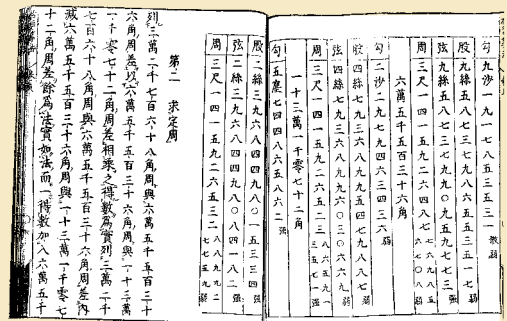 勾九沙一九一七八五三五三一微弱
股九絲五八七三七九九五五三五一七弱
弦九絲五八七三七九九〇九五九七七三強
周三尺一四一五九二六四八七七六九八五六七〇八弱
六萬五千五百三十六角
勾二沙二九七九四六三四三六弱
股四絲七九三六八九九八五四七八八七弱
弦四絲七九三六八九九六〇三〇六六九弱
周三尺一四一五九二六五二三八六五九一三三五七一強
一十三萬一千零七十二角
勾五塵七四四八六五八六二強
股二絲三九六八四四九八〇一五三三四強
弦二絲三九六八四四九八〇八四一八二強
周三尺一四一五九二六五三二八八九九二七七五九弱
第二 求定周
列三萬二千七百六十八角周與六萬五千五百三十
六角周差以六萬五千五百三十六角周與一十三萬
一千零七十二角周差相乗之得數爲實列三萬二千
七百六十八角周與六萬五千五百三十六角周差内
減六萬五千五百三十六角周與一十三萬一千零七
十二角周差餘爲法實如法而一得數加入六萬五千